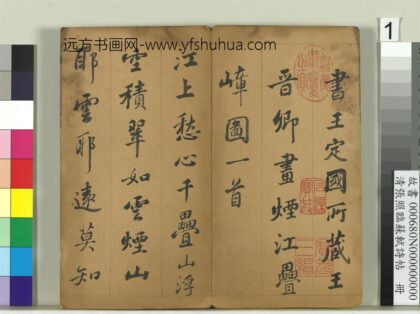 远方书画网--www.yfshuhua.com
1
書王定國所藏王
晉卿畫煙江疊
嶂圖一首
江上愁心千疊山浮
空積翠如雲煙山
耶雲耶遠莫知
故書000680N000000000
清張照臨蘇軾詩帖 冊